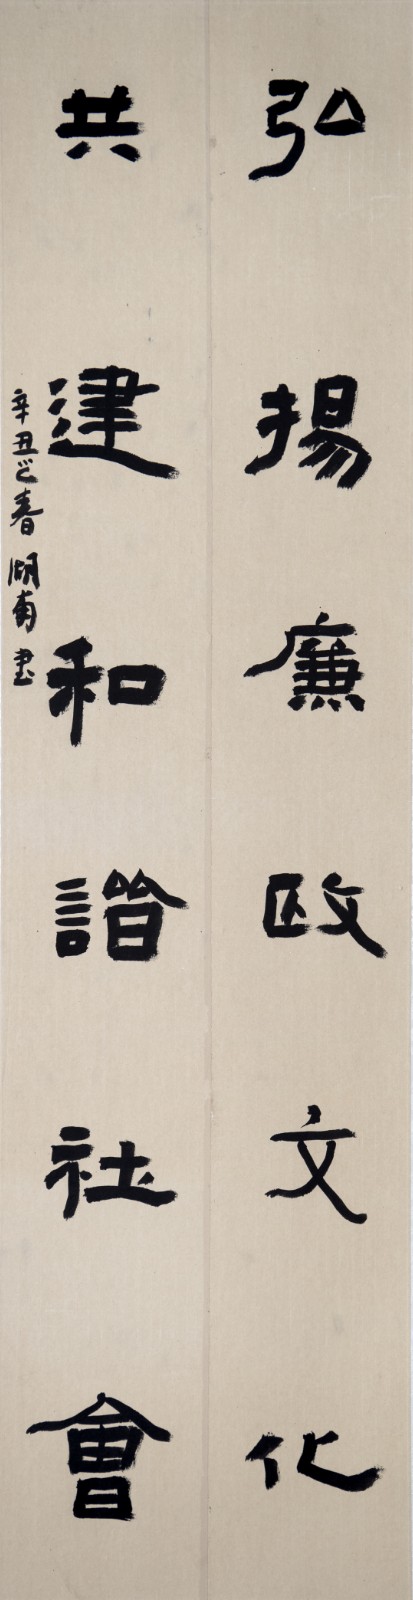 弘揚廉政文化
共建和諧社會
辛丑之春湖南书